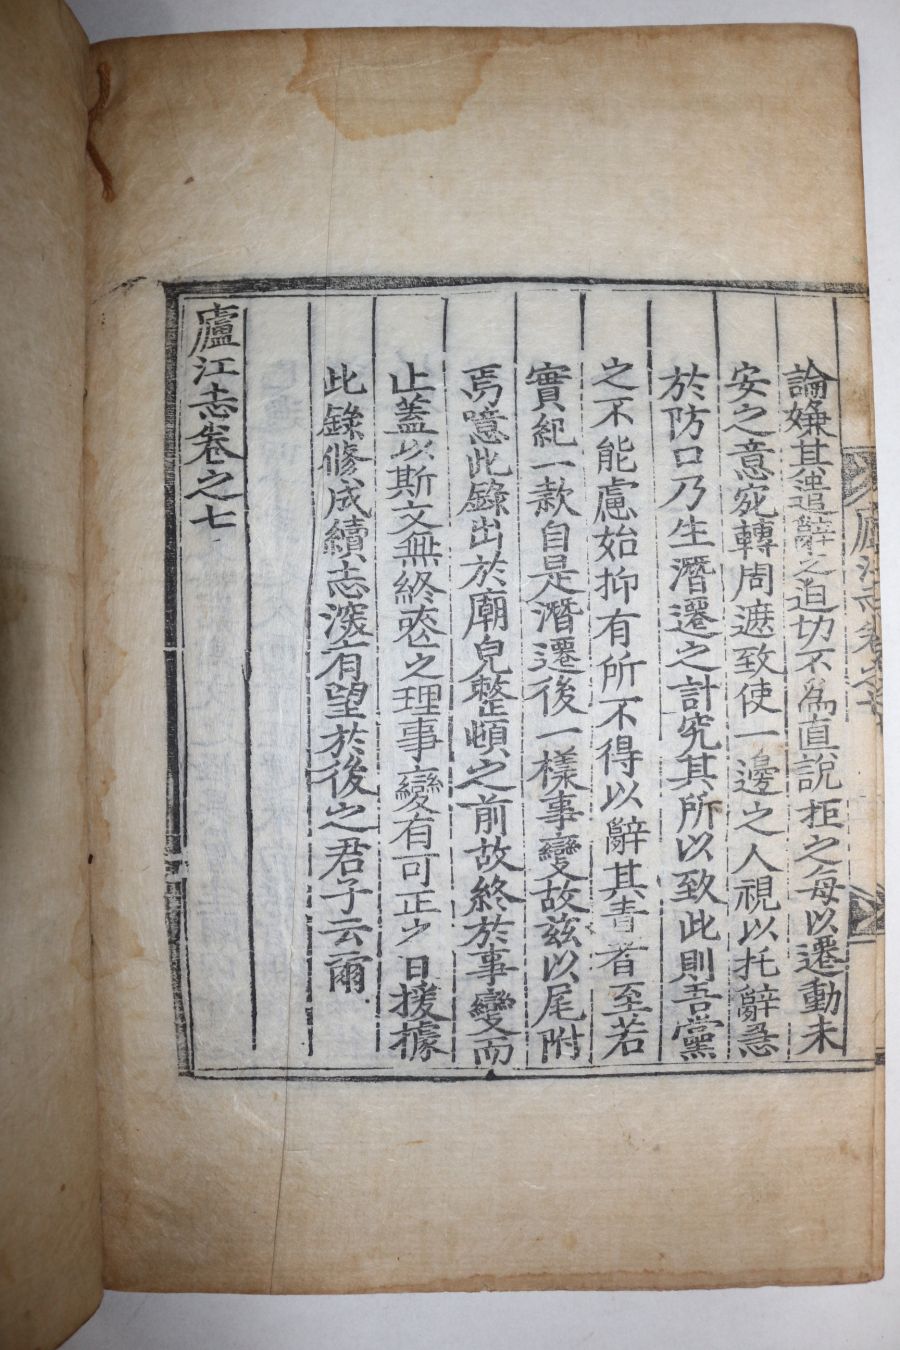 論嫌其遣辭之迫切不為直說拒之毎以遷動未
安之意宛轉周遮致使一邊之人視以托辭急
於防口乃生潛遷之計究其所以致此則吾黨
之不能慮始抑有所不得以辭其責者至若
實紀一款自是潛遷後一樣事變故茲以尾附
焉噫此錄出於廟皃整頓之前故終於事變而
止蓋以斯文無終丧之理事變有可正之日援據
此錄修成續志深有望於後之君子云爾
廬江志卷之七
廬江志卷之七